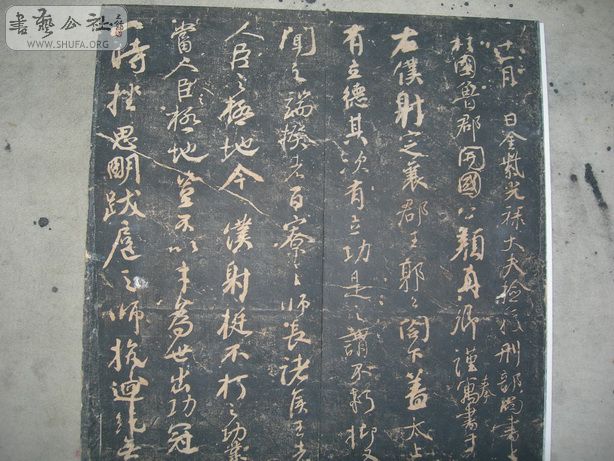 書藝公社
WWW.SHUFA.ORG
十一月 日金紫光祿大夫檢校刑部尚書上
柱國魯郡開國公顏真卿謹奉寓書于
右僕射定襄郡王郭公閣下蓋太上
有立德其次有立功是之謂不朽抑又
聞之端揆者百寮之師長諸侯王者
人臣之極地今僕射挺不朽之功業
當人臣極地豈不以才為世出功冠
一時挫思明跋扈之師抗迴紇無